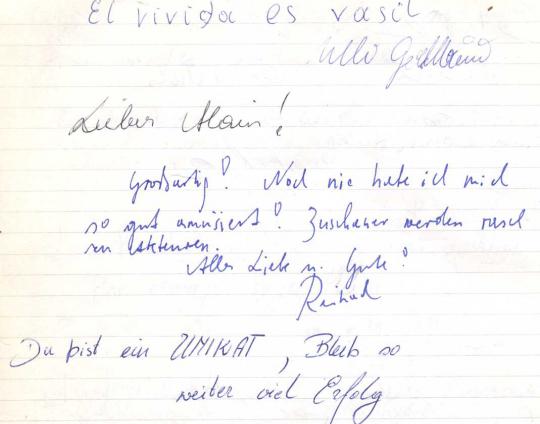 El vivida es vasil
Lieber Alain!
Großartig! Noch nie habe ich mich
so gut amüsiert! Zuschauer werden rasch
zu Akteuren.
Alles Liebe u. Gute!
Reinhard
Du bist ein UNIKAT, Bleib so
weiter viel Erfolg